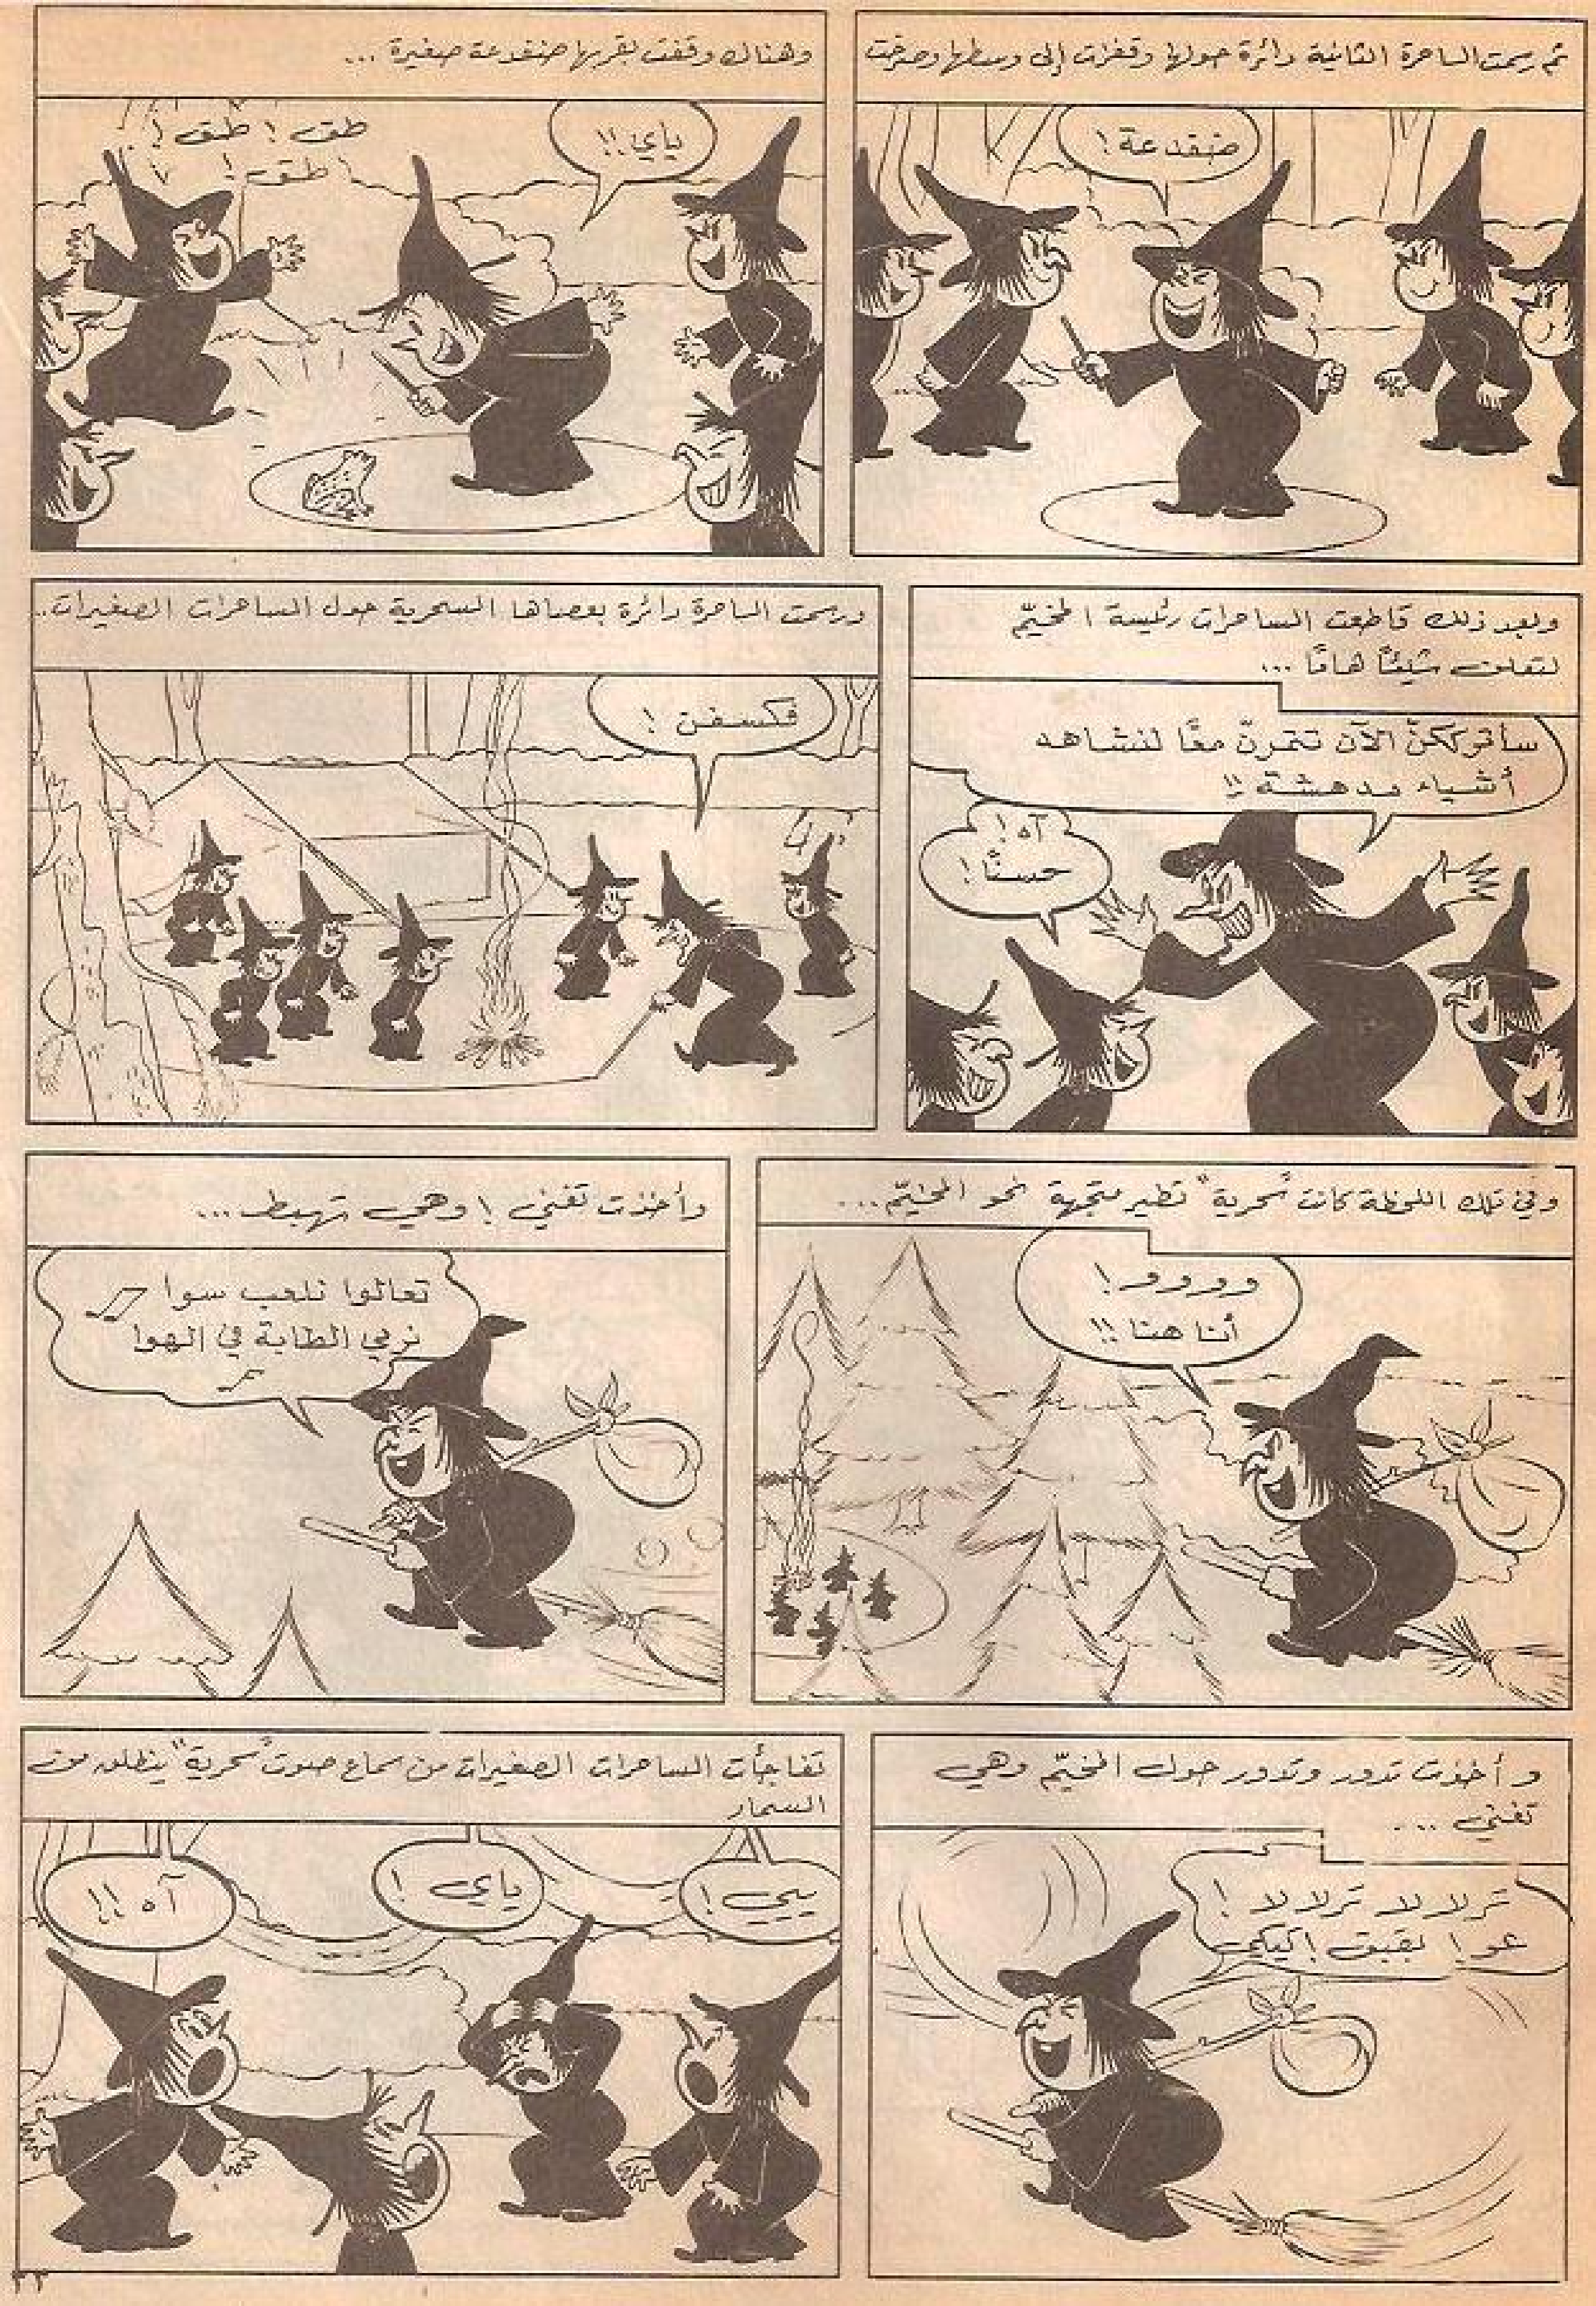 ثم رسمت الساحرة الثانية دائرة حولها وقفزت إلى وسطها وصرخت
ضفدعة !
وهناك وقفت بقربها ضفدعة صغيرة ...
ياي !!
طق ! طق !
طق !
وبعد ذلك قاطعت الساحرات رئيسة المخيّم
لتعلن شيئًا هامًا ...
سأترككنّ الآن تتمرنّ معًا لنشاهد
أشياء مدهشة !!
آه !
حسنًا !
ورسمت الساحرة دائرة بعصاها السحرية حول الساحرات الصغيرات..
فكسفن !
وفي تلك اللحظة كانت "سحرية" تطير متجهة نحو المخيّم ...
وورود !
أنا هنا !!
وأخذت تغني ! وهي تهبط ...
تعالوا نلعب سوا
نرمي الطابة في الهوا
و أخذت تدور وتدور حول المخيّم وهي
تغني ....
ترلا لا ترلا لا !
عو ! بقبق ! كيكي
تفاجأت الساحرات الصغيرات من سماع صوت "سحرية" ينطلق من
السماء
ييي !
ياي !
آه !!
٣٣